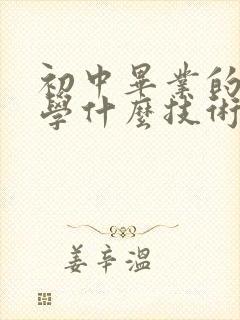 初中畢業的
學什麼技術
姜辛溫